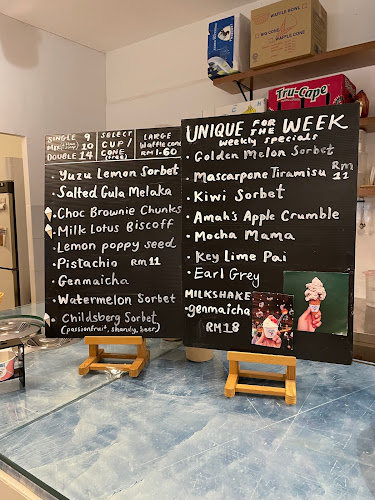 WAFFLE BOWL
WAFFLE CONE
Tru-Cape
SINGLE 9
MIX 10
DOUBLE 14
SELECT
CUP /
CONE
(free)
LARGE
Waffle cone
RM1.60
Yuzu Lemon Sorbet
Salted Gula Melaka
Choc Brownie Chunks
Milk Lotus Biscoff
Lemon poppy seed
Pistachio RM11
Genmaicha
Watermelon Sorbet
Childsberg Sorbet
(passionfruit, shandy, beer)
UNIQUE FOR THE WEEK
weekly specials
Golden Melon Sorbet
Mascarpone Tiramisu RM 11
Kiwi Sorbet
Amah's Apple Crumble
Mocha Mama
Key Lime Pai
Earl Grey
MILKSHAKE
genmaicha
RM18